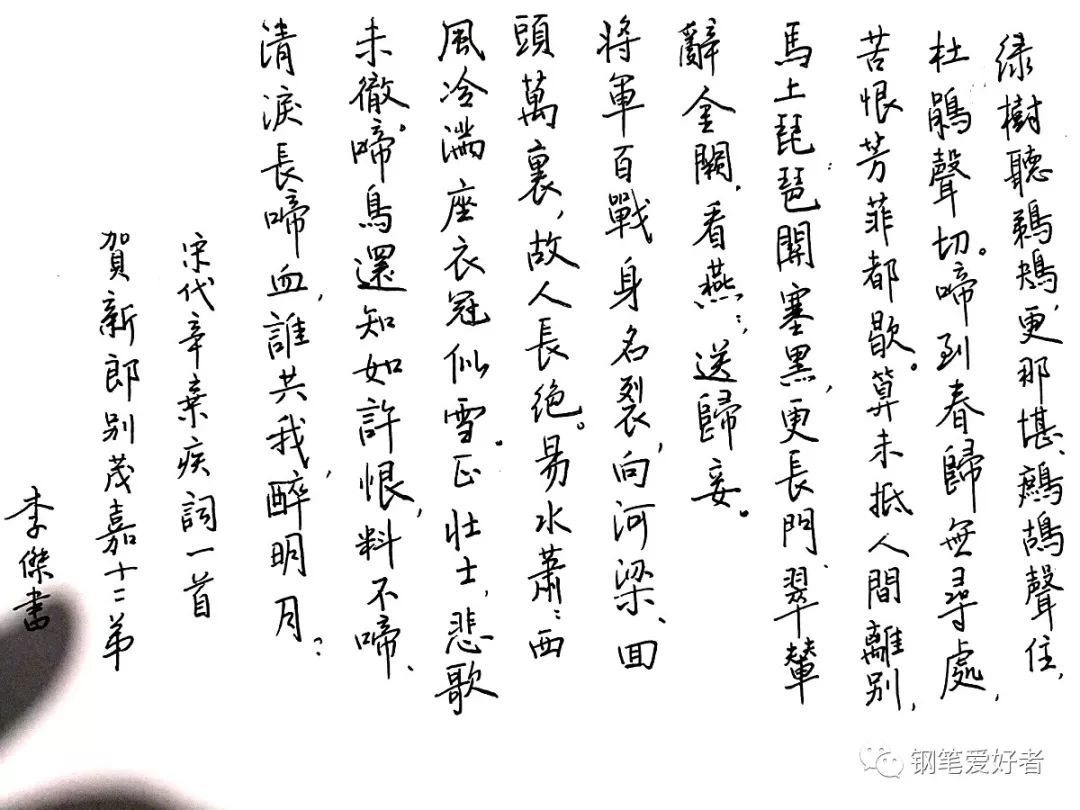 绿樹聽鵜鴂更，那堪、鷓鴣聲住，
杜鵑聲切。啼到春歸無尋處，
苦恨芳菲都歇。算未抵人間離别，
馬上琵琶關塞黑，更長門、翠輦
辭金闕，看燕：，送歸妾。
將軍百戰身名裂，向河梁、回
頭萬裏，故人長绝。易水蕭：西
風冷滿座衣冠似雪。正壯士，悲歌
未徹。啼鳥還知如許恨，料不啼、
清淚長啼血，誰共我，醉明月：
宋代辛棄疾詞一首
賀新郎别茂嘉十二弟
李傑書
钢笔爱好者